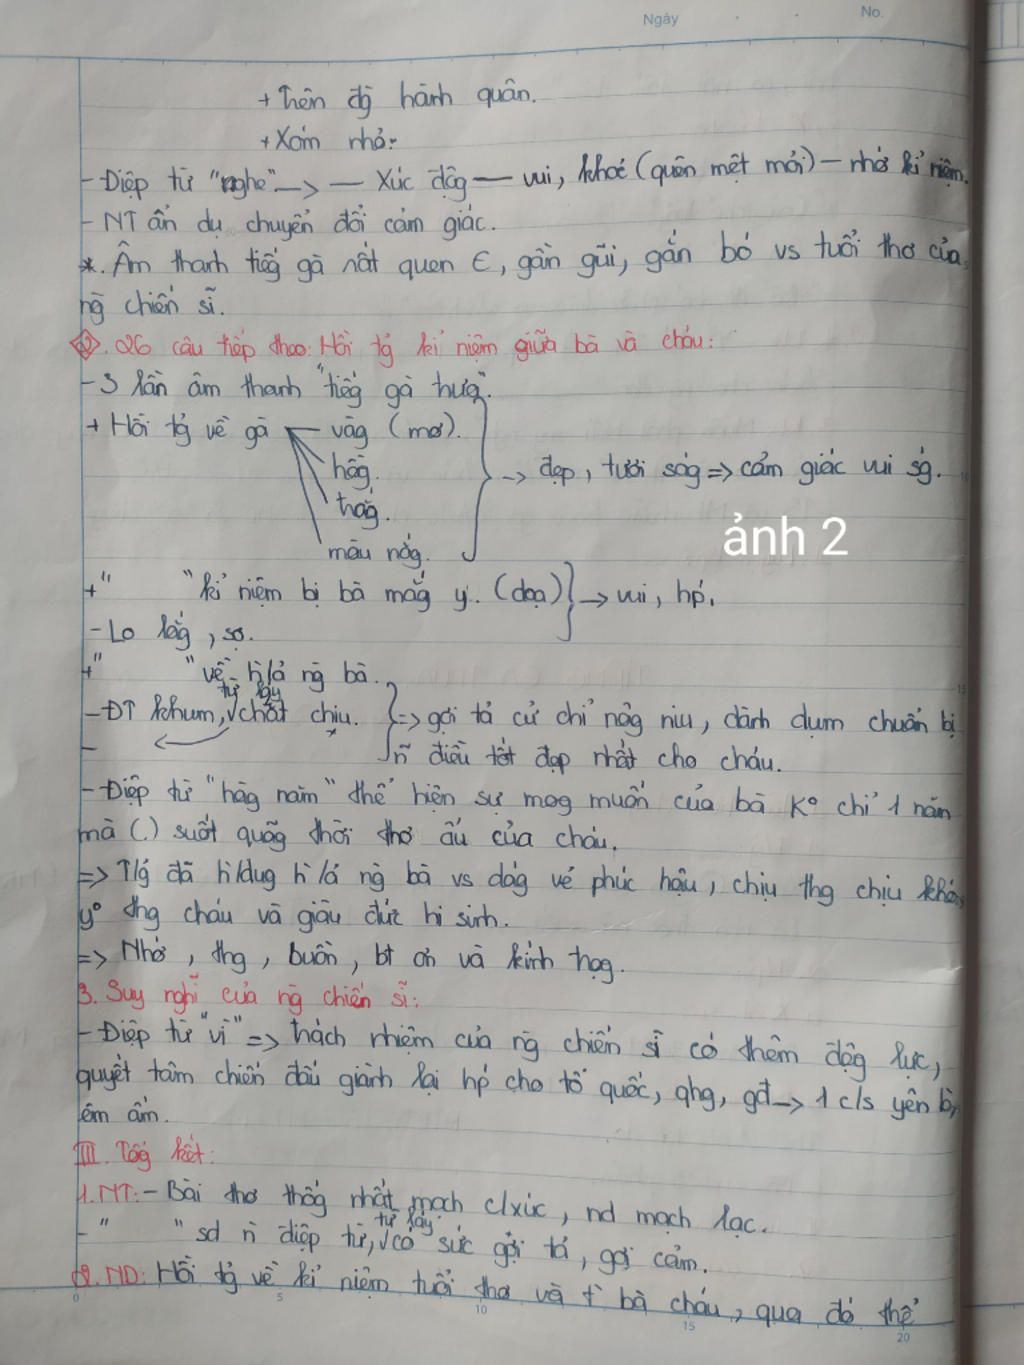 Ngày . . No.
+ Trên đg hành quân.
+ Xóm nhỏ:
- Điệp từ "nghe" -> — Xúc độg — vui, khoẻ (quên mệt mỏi) - nhớ kỉ niệm.
- NT ẩn dụ chuyển đổi cảm giác.
*. Âm thanh tiếg gà rất quen Є, gần gũi, gắn bó vs tuổi thơ của
ng̃ chiến sĩ.
2. 26 câu tiếp theo: Hồi tg̉ kỉ niệm giữa bà và cháu:
- 3 lần âm thanh "tiếg gà trưa".
+ Hồi tg̉ về gà — vàg (mơ).
hồg.
trắg.
màu nắg.
-> đẹp, tươi ság => cảm giác vui sg.
ảnh 2
+ " "kỉ niệm bị bà mắg y.. (dọa) -> vui, hṕ.
- Lo lắg, sợ.
+ " "về h̀/ả ng̃ bà.
từ láy
- ĐT khum, √chắt chịu. => gợi tả cử chỉ nâg niu, dành dụm chuẩn bị
- ñ điều tốt đẹp nhất cho cháu.
- Điệp từ "hàg năm" thể hiện sự mog muốn của bà K° chỉ 1 năm
mà (.) suốt quãg thời thơ ấu của cháu.
=> T/g đã h̀/dug h̀/ả ng̃ bà vs dág vẻ phúc hậu, chịu thg chịu khó,
y° thg cháu và giàu đức hi sinh.
=> Nhớ, thg, buồn, bt ơn và kính trọg.
3. Suy nghĩ của ng̃ chiến sĩ:
- Điệp từ "vì" => trách nhiệm của ng̃ chiến sĩ có thêm độg lực,
quyết tâm chiến đấu giành lại hṕ cho tổ quốc, qhg, gđ -> 1 c/s yên b̀,
êm ấm.
III. Tổg kết:
1. NT: - Bài thơ thốg nhất mạch c/xúc, nd mạch lạc.
từ láy
- " " sd ñ điệp từ, √có sức gợi tả, gợi cảm.
2. ND: Hồi tg̉ về kỉ niệm tuổi thơ và t̀ bà cháu, qua đó thể
0 5 10 15 20